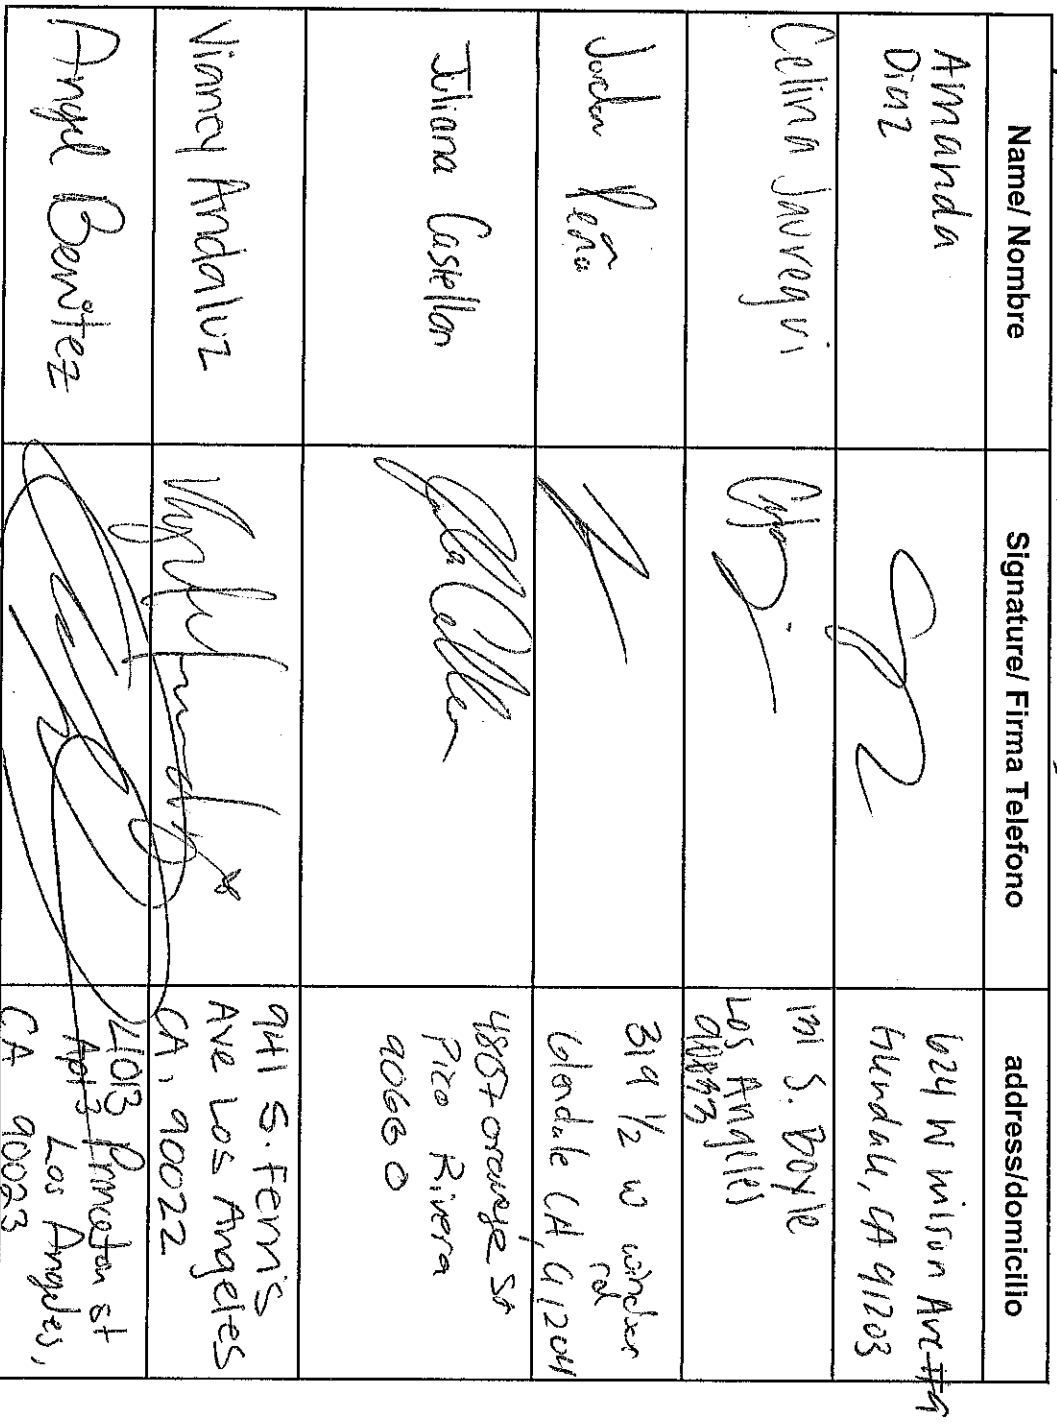 Name/ Nombre
Signature/ Firma Telefono
address/domicilio
Amanda
Diaz
624 W Wilson Ave #9
Glendale, CA 91203
Celina Jauregui
S. Boyle
Los Angeles
Jordan Peña
319 1/2 W windsor
rd
Glendale CA, 91204
Juliana Castellon
orange St
Pico Rivera
90660
Vianey Andaluz
941 S. Ferris
Ave Los Angeles
CA, 90022
Angel Benitez
Princeton st
Apt 3 Los Angeles,
CA 90023